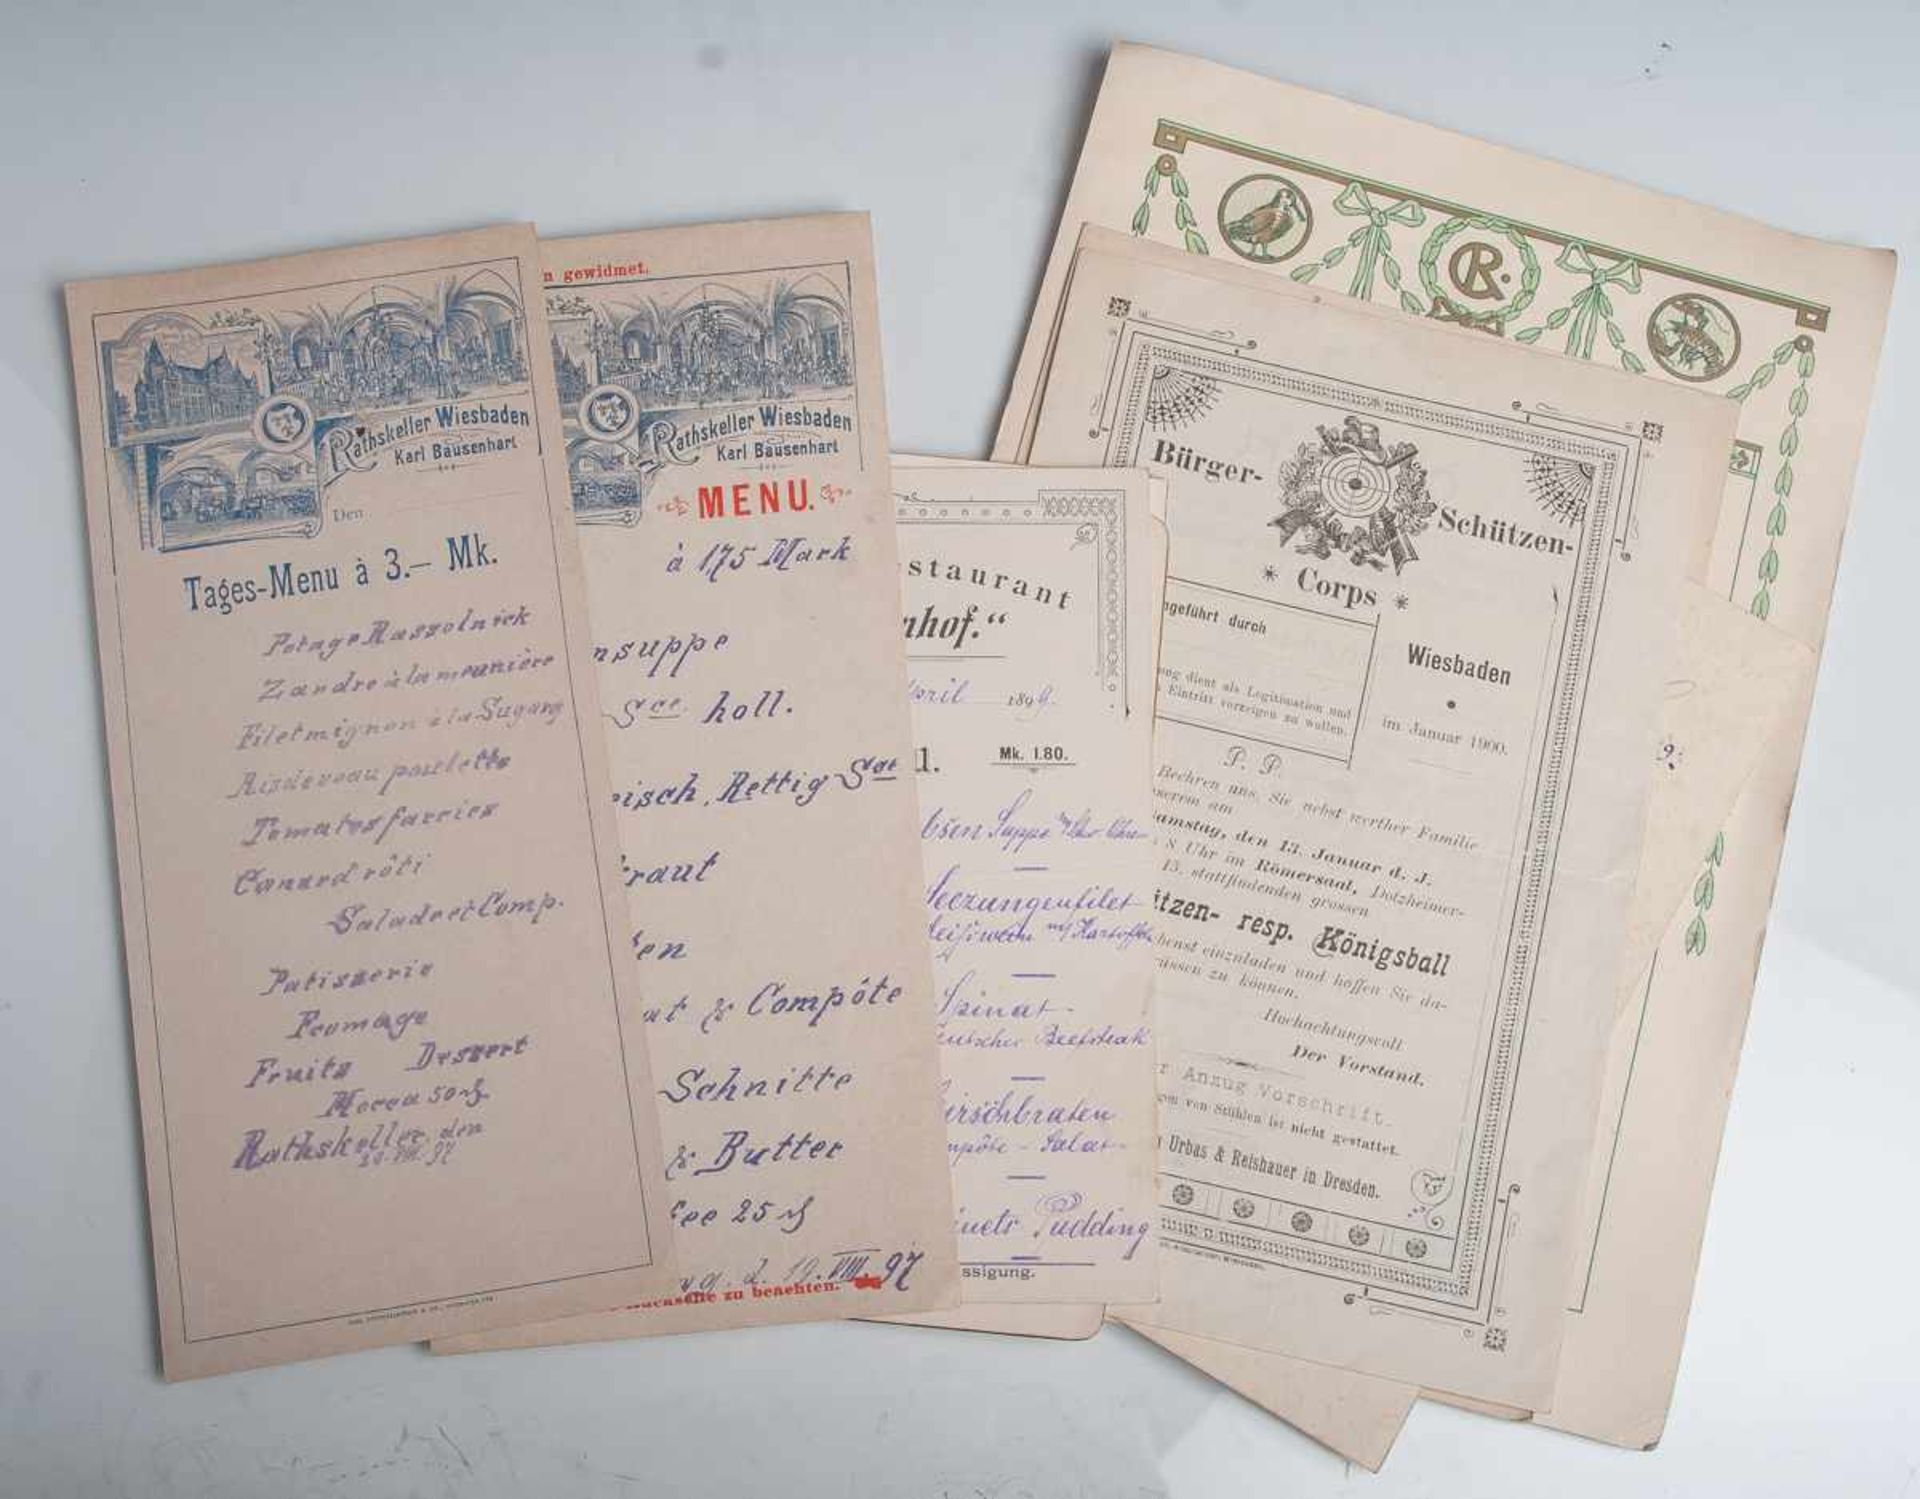 Rathskeller Wiesbaden
Karl Bausenhart
Den
Tages-Menu à 3.— Mk.
Potage Rassolnick
Zandre à la meunière
Filet mignon à la Sugarg
Risdeveau poulette
Tomates farcies
Canard rôti
Salade et Comp.
Patisserie
Fromage
Fruits Dessert
Mocca 50
Rathskeller, den
VIII. 97
n gewidmet.
Rathskeller Wiesbaden
Karl Bausenhart
MENU.
à 1,75 Mark
nsuppe
Sce holl.
eisch, Rettig Sce
kraut
en
at & Compôte
Schnitte
& Butter
fee 25
d. 19. VIII. 97
zu beachten.
staurant
nhof."
April 189
Mk. 1.80.
bsen Suppe
Seezungenfilet
Kartoffeln
Spinat
Deutscher Beefsteak
Hirschbraten
Compôte - Salat
Pudding
ssigung.
CR
Bürger-
Schützen-
* Corps *
ngeführt durch
ung dient als Legitimation und
Eintritt vorzeigen zu wollen.
Wiesbaden
im Januar 1900.
P. P.
Beehren uns, Sie nebst werther Familie
nserem am
amstag, den 13. Januar d. J.
8 Uhr im Römersaal, Dotzheimer-
15, stattfindenden grossen
ützen- resp. Königsball
benst einzuladen und hoffen Sie da-
rüssen zu können.
Hochachtungsvoll
Der Vorstand.
r Anzug Vorschrift.
von Stühlen ist nicht gestattet.
n Urbas & Reishauer in Dresden.
9.